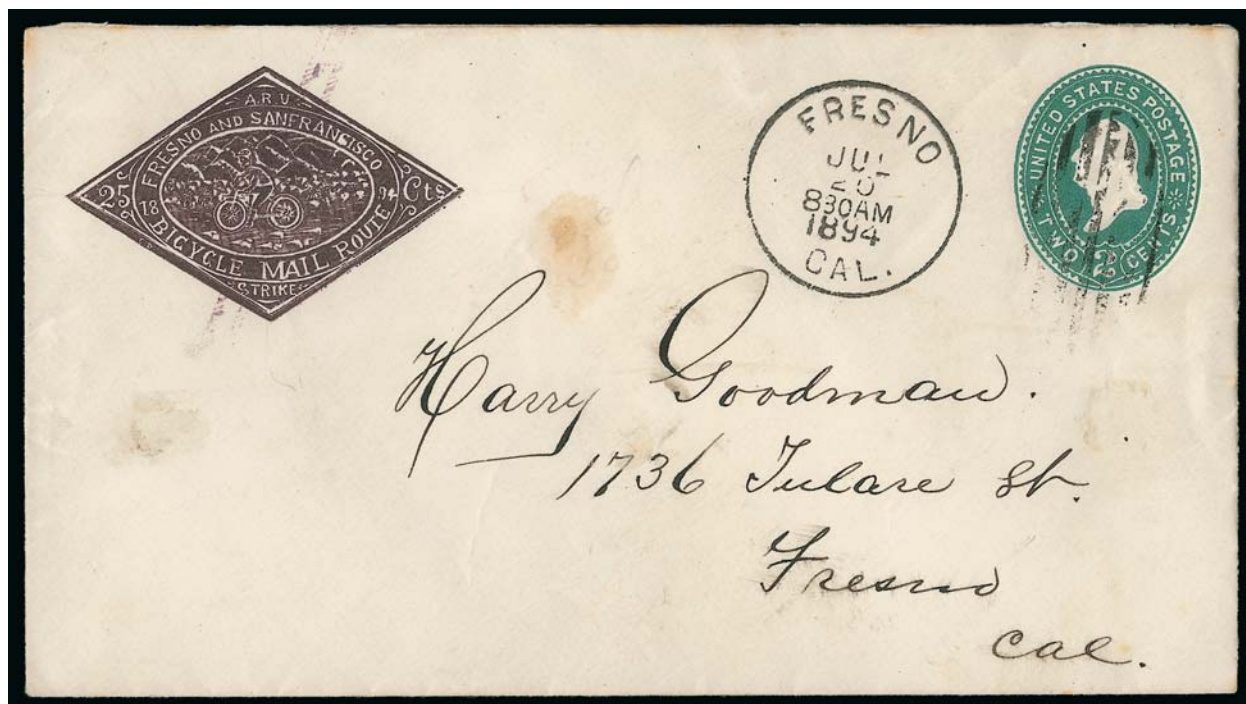 A.R.U.
FRESNO AND SANFRANSISCO
25 Cts
18 94
BICYCLE MAIL ROUTE
STRIKE
FRESNO
JUL
20
830AM
1894
CAL.
UNITED STATES POSTAGE
TWO 2 CENTS
Harry Goodman.
1736 Tulare St.
Fresno
Cal.